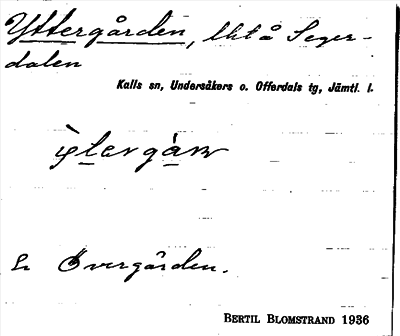 Yttergården, lht å Seger-
dalen
Kalls sn, Undersåkers o. Offerdals tg, Jämtl. l.
Övergården.
BERTIL BLOMSTRAND 1936